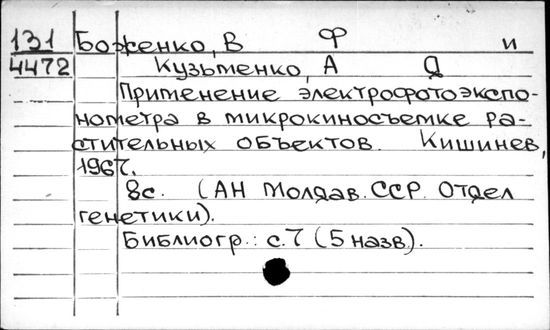 131 Боженко, В Ф и
4472 Кузьменко, А Д
Применение электрофотоэкспо-
нометра в микрокиносъемке ра-
стительных объектов. Кишинев,
1967.
8с. (АН Молдав. ССР. Отдел
генетики).
Библиогр.: с.7 (5 назв).